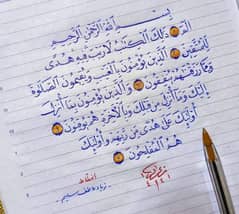 بِسْمِ اللَّهِ الرَّحْمَٰنِ الرَّحِيمِ
الٓمٓ ذَٰلِكَ الْكِتَٰبُ لَا رَيْبَ فِيهِ هُدًى
لِّلْمُتَّقِينَ الَّذِينَ يُؤْمِنُونَ بِالْغَيْبِ وَيُقِيمُونَ الصَّلَوٰةَ
وَمِمَّا رَزَقْنَٰهُمْ يُنفِقُونَ وَالَّذِينَ يُؤْمِنُونَ بِمَا أُنزِلَ
إِلَيْكَ وَمَا أُنزِلَ مِن قَبْلِكَ وَبِالْآخِرَةِ هُمْ يُوقِنُونَ
أُولَٰئِكَ عَلَىٰ هُدًى مِّن رَّبِّهِمْ وَأُولَٰئِكَ
هُمُ الْمُفْلِحُونَ